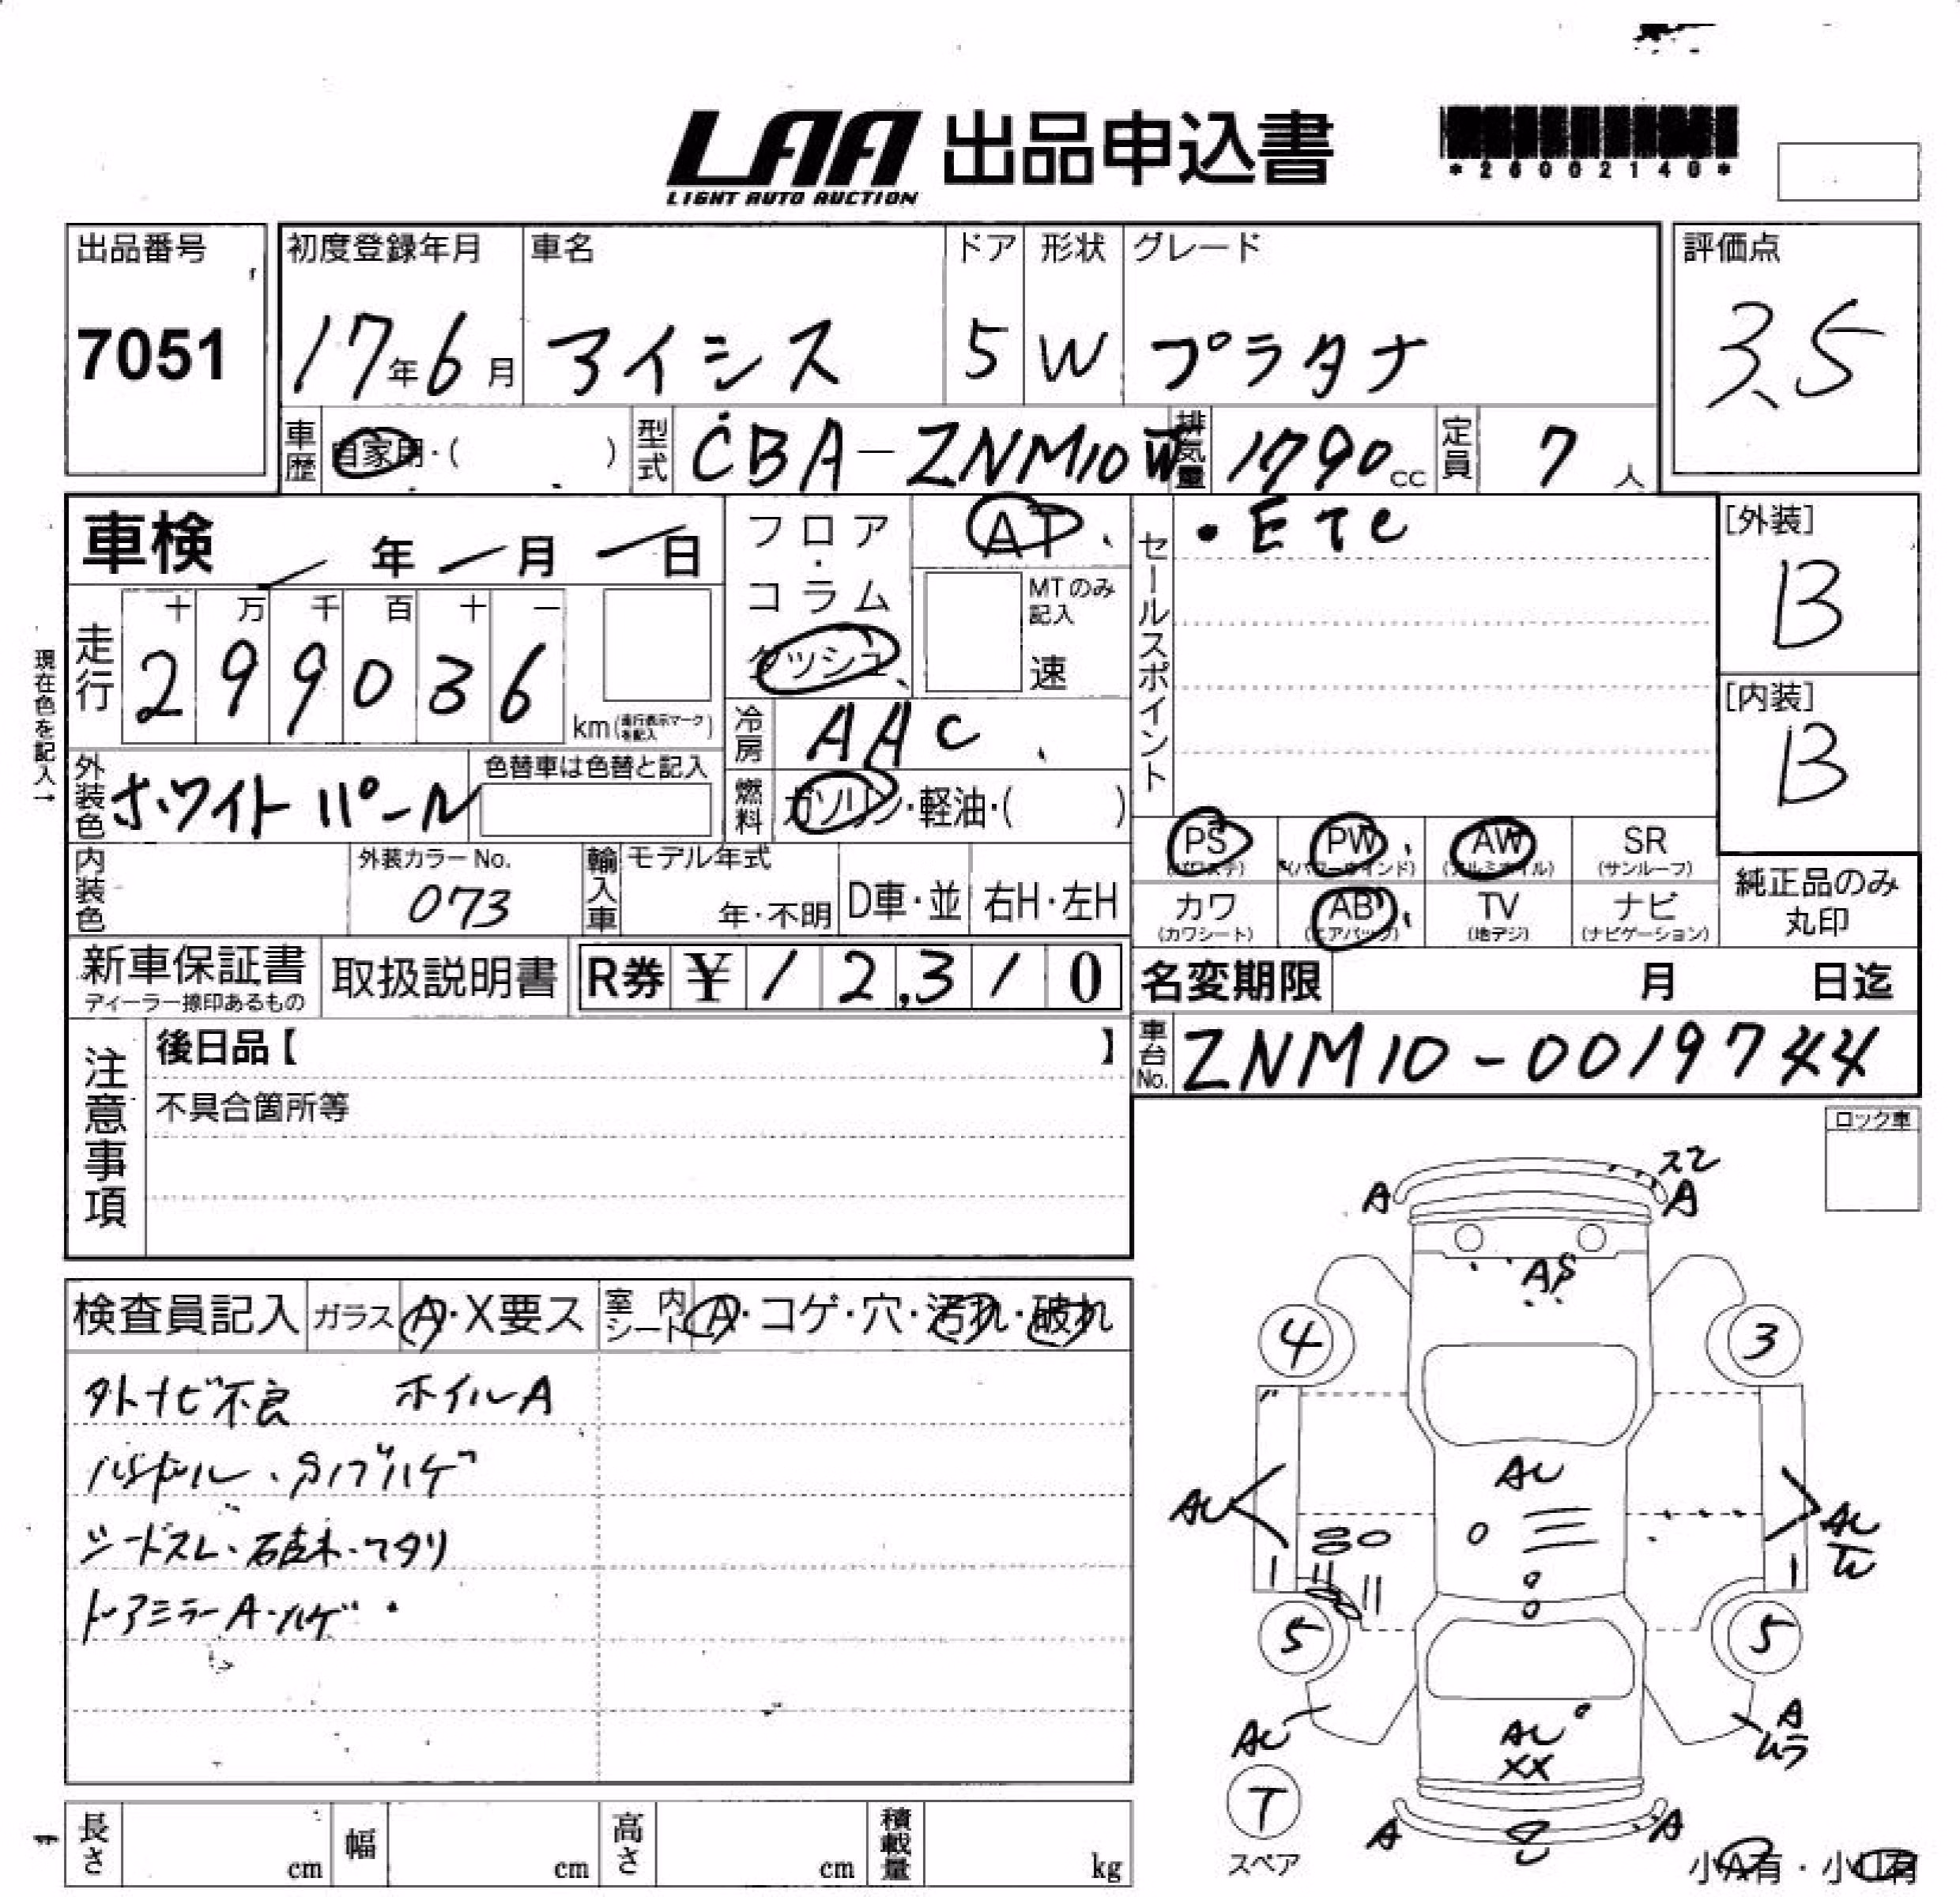 LAA 出品申込書
LIGHT AUTO AUCTION
*26002140*
出品番号 初度登録年月 車名 ドア 形状 グレード 評価点
7051 17年6月 アイシス 5 W プラタナ 3.5
車歴 自家用・( ) 型式 CBA-ZNM10W 排気量 1790cc 定員 7人
車検 年 月 日 フロア・コラム ダッシュ AT セールスポイント ・ETC [外装]
B
MTのみ記入
速
現在色を記入→
走行 十 万 千 百 十 一
299036 km(走行表示マークを記入)
[内装]
B
冷房 AAC
外装色 ホワイトパール 色替車は色替と記入 燃料 ガソリン・軽油・( )
PS PW AW SR
(パワステ) (パワーウインド) (アルミホイル) (サンルーフ)
内装色 外装カラーNo. 073 輸入車 モデル年式 年・不明 D車・並 右H・左H
カワ AB TV ナビ
(カワシート) (エアバッグ) (地デジ) (ナビゲーション)
純正品のみ
丸印
新車保証書 取扱説明書 R券 ¥12,310 名変期限 月 日迄
ディーラー捺印あるもの
車台No. ZNM10-0019744
注意事項
後日品【 】
不具合箇所等
ロック車
検査員記入 ガラス A・X要ス 室内シート A・コゲ・穴・汚れ・破れ
外ナビ不良 ホイルA
ハンドル・
シートスレ・
ドアミラーA・ハゲ
A A
4 3
AU
AU AU
5 5
AU A
AU ムラ
XX
T
スペア
A A
小A有・小
長さ cm 幅 cm 高さ cm 積載量 kg